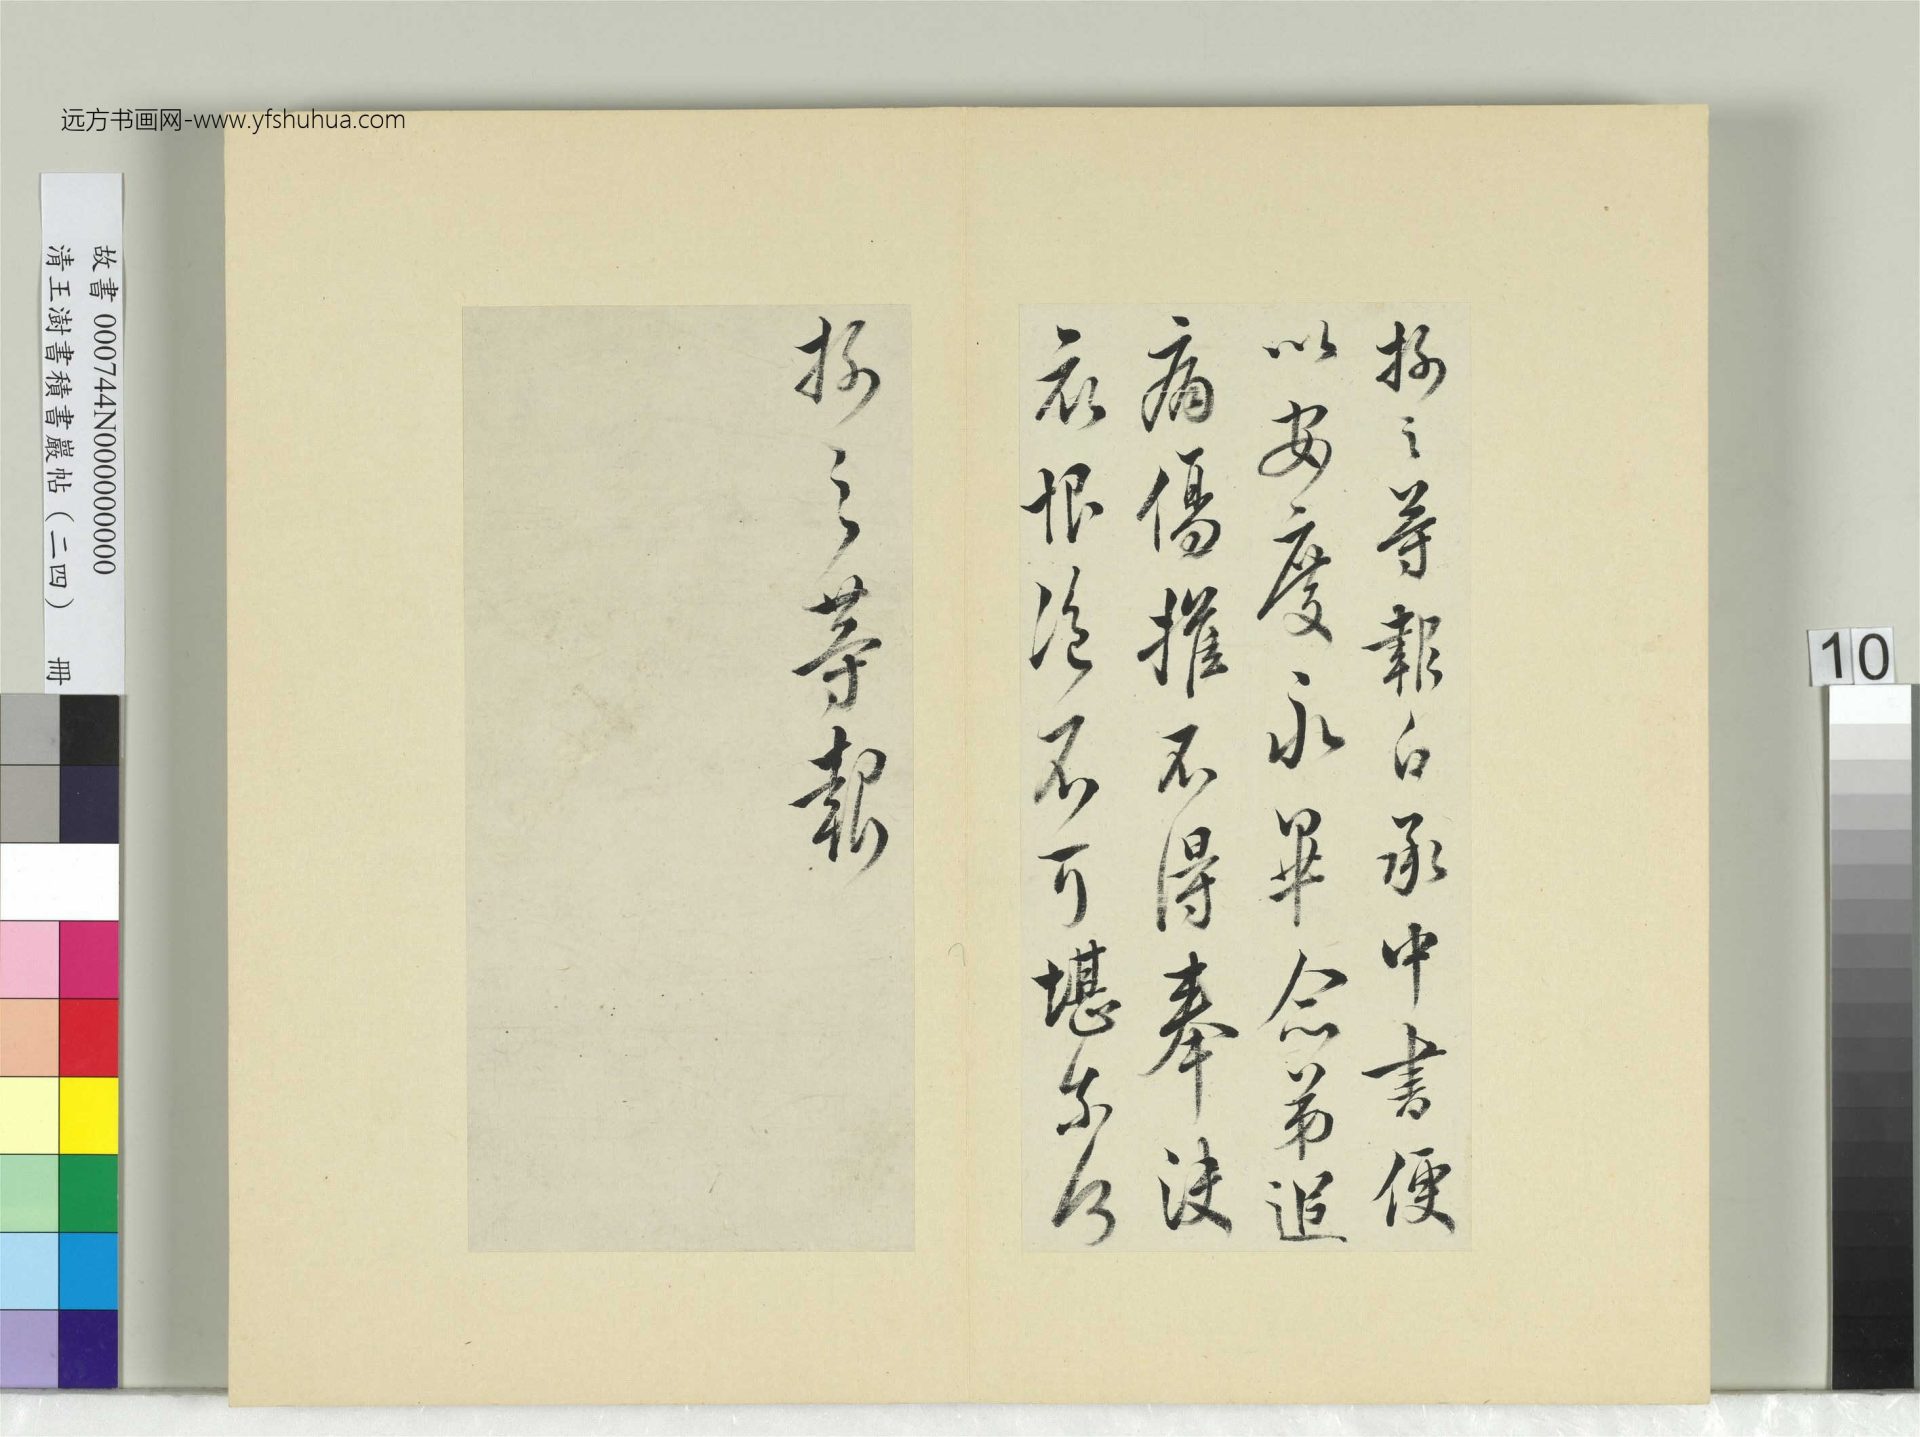 远方书画网-www.yfshuhua.com
故書 000744N000000000
清王澍書積書巖帖（二四） 冊
10
操之等報白承中書便
以安厝永畢念弟追
痛傷摧不得奉訣
哀恨深不可堪奈何
操之等報